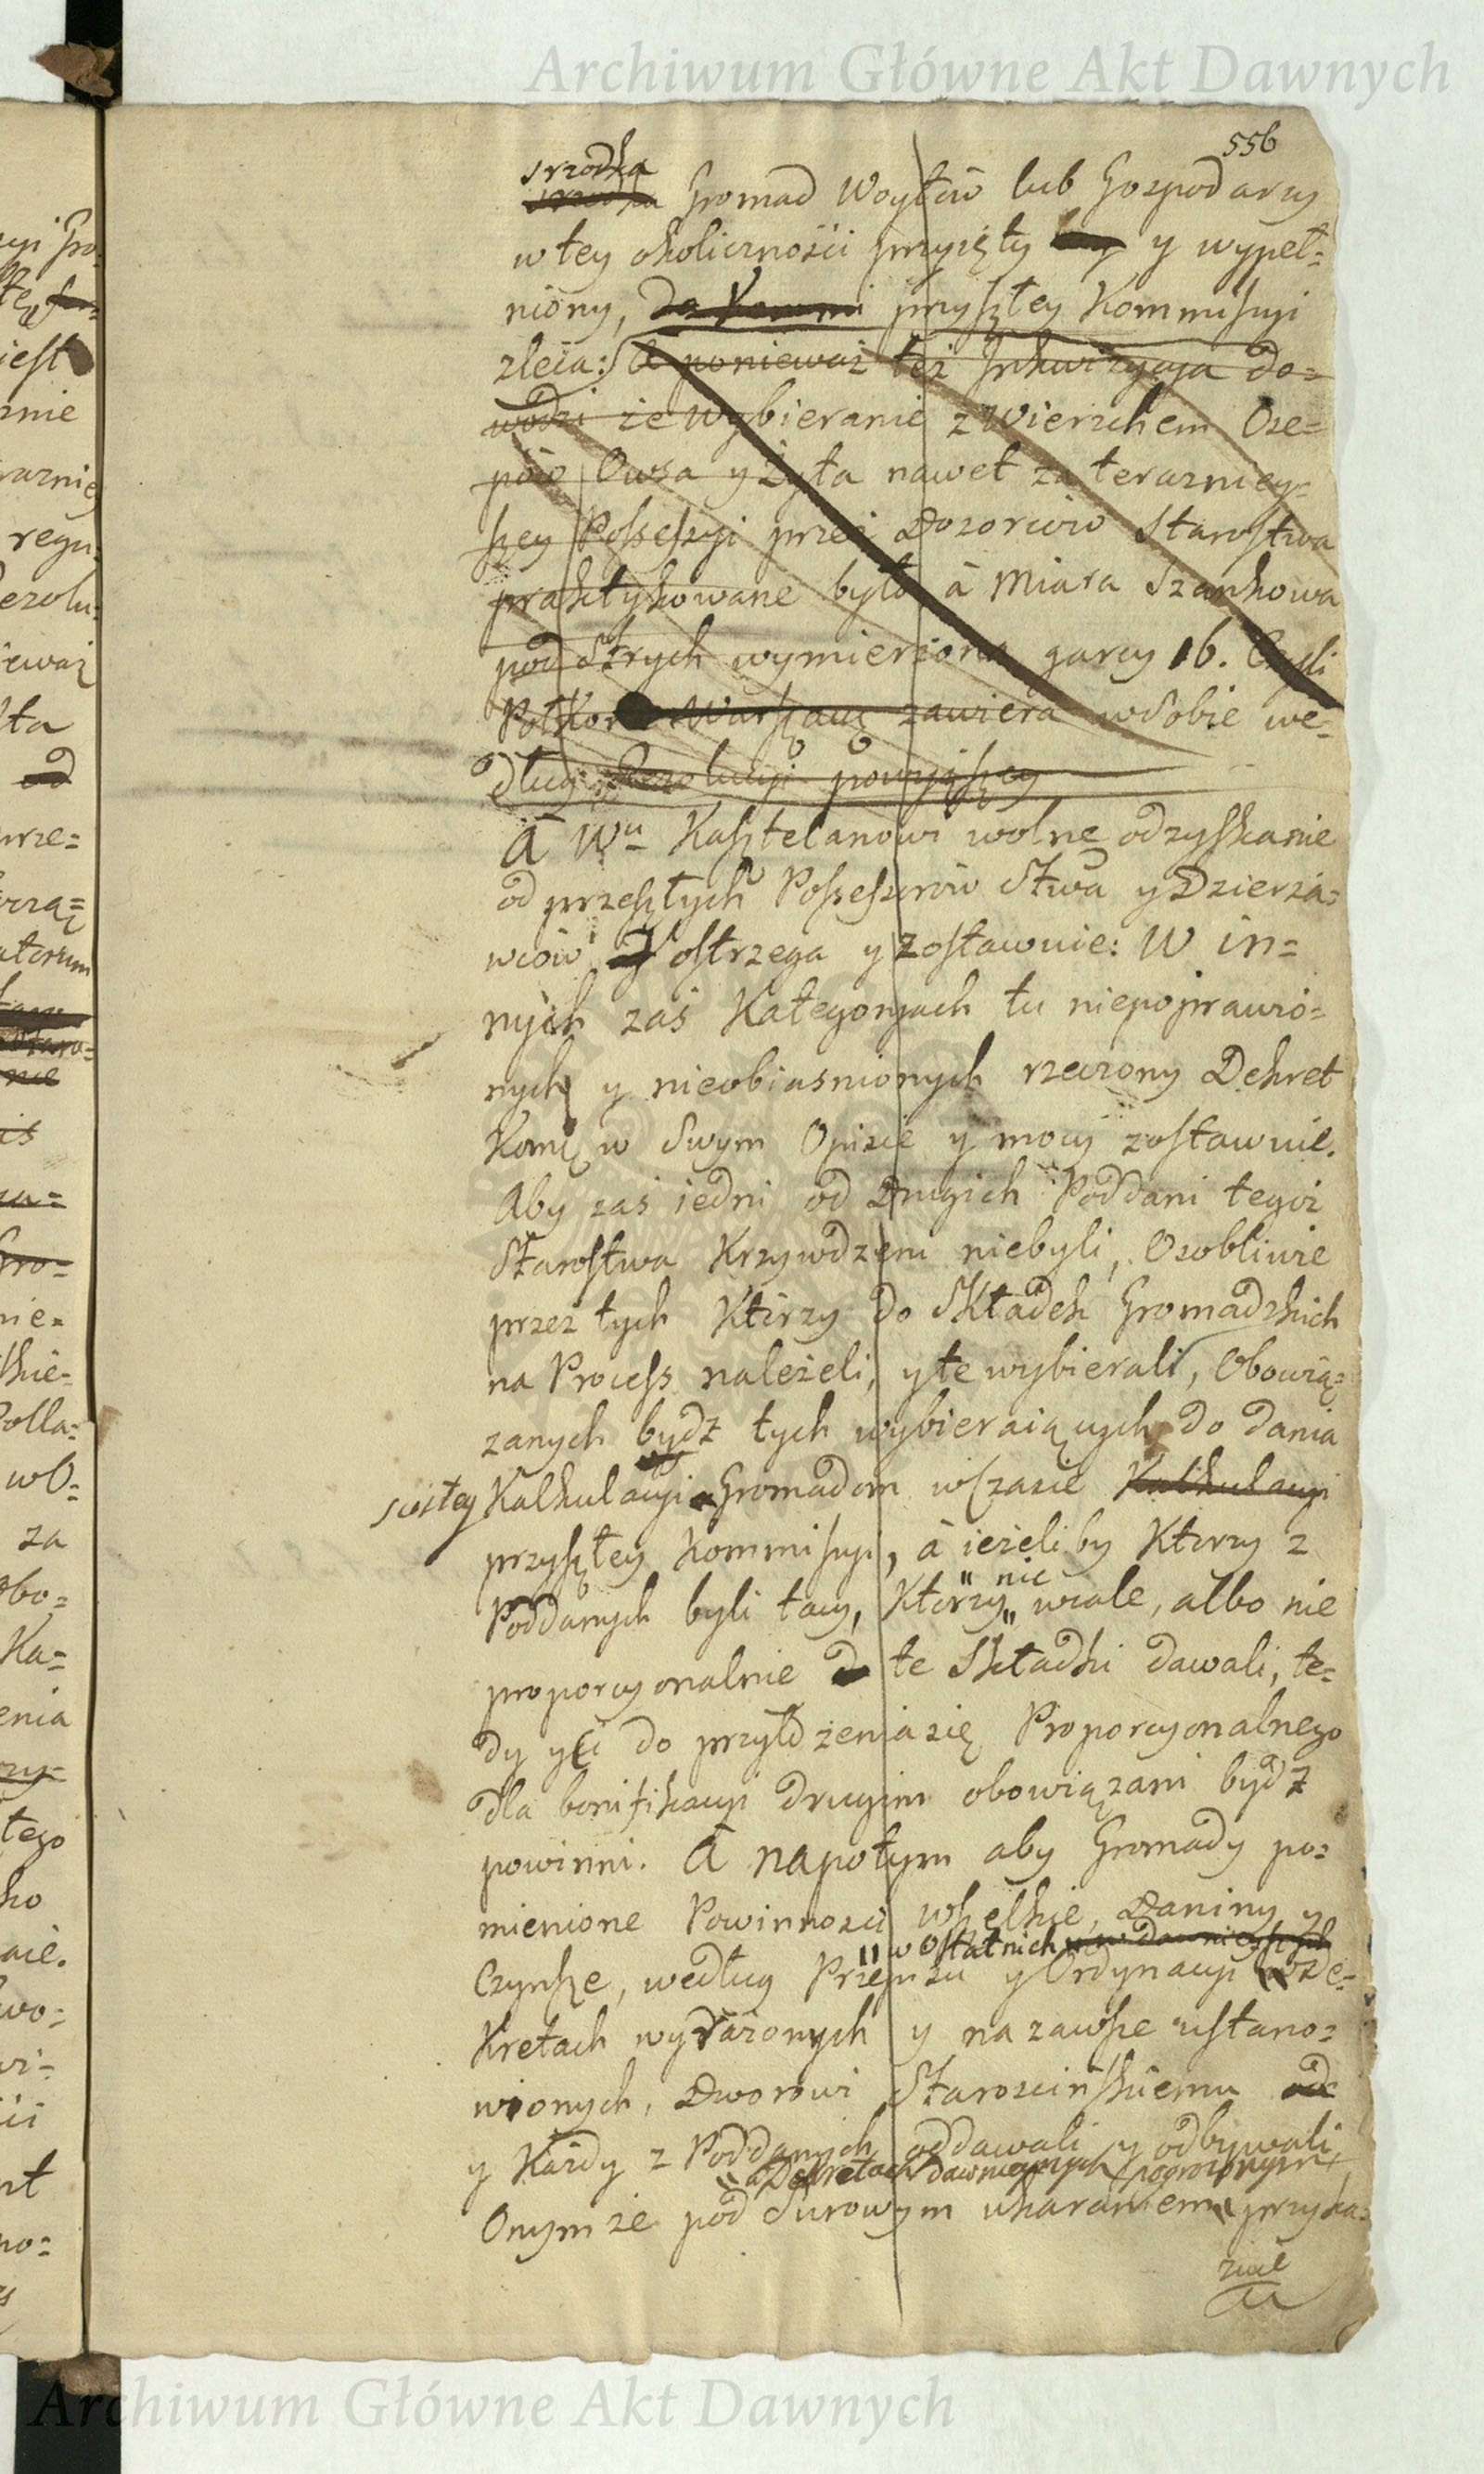 Archiwum Główne Akt Dawnych
556
srzodka
srzodka Gromad Woytów lub Gospodarzy
w tey okoliczności przyięty y wypeł=
niony, do Kommi przyszłey Kommissyi
zleca: A ponieważ też Inkwizycya do=
wodzi że wybieranie z Wierzchem Ose=
pów Owsa y Żyta nawet za terazniey=
szey Possessyi przez Dozorców Starostwa
praktykowane było à Miara Szankowa
pod Strych wymierzona garcy 16. Czyli
Poł Kor Warszawę zawiera w Sobie we=
dług Rezolucyi powyższey
A Wu Kasztelanowi wolne odzyskanie
od przeszłych Possessorów Stwa y Dzierza=
wców ostrzega y zostawuie: W in=
nych zaś Kategoryach tu niepoprawio=
nych y nieobiasnionych rzeczony Dekret
Komę w Swym Opisie y mocy zostawuie.
Aby zaś iedni od Drugich Poddani tegoż
Starostwa Krzywdzeni niebyli, Osobliwie
przez tych Ktorzy do Składek Gromadzkich
na Process należeli, y te wybierali, Obowią=
zanych bydz tych wybieraiących do dania
scisłey Kalkulacyi Gromadom w czasie Kalkulacyi
przyszłey Kommissyi, à ieżeliby Ktorzy z
nic
Poddanych byli tacy, Ktorzy wcale, albo nie
proporcyonalnie do te Składki dawali, te=
dy y ci do przyłożenia się Proporcyonalnego
dla bonifikacyi drugim obowiązani bydz
powinni. A napotym aby Gromady po=
mienione Powinnosci wszelkie, Daniny y
w ostatnich y w dawnieyszych
Czynsze, według Przepisu y Ordynacyi w De=
kretach wyrażonych y na zawsze ustano=
wionych, Dworowi Starościńskiemu odd
y Każdy z Poddanych oddawali y odbywali
w Dekretach dawnieyszych pogrożonym
Onymże pod Surowym ukaraniem przyka=
zuie
Archiwum Główne Akt Dawnych